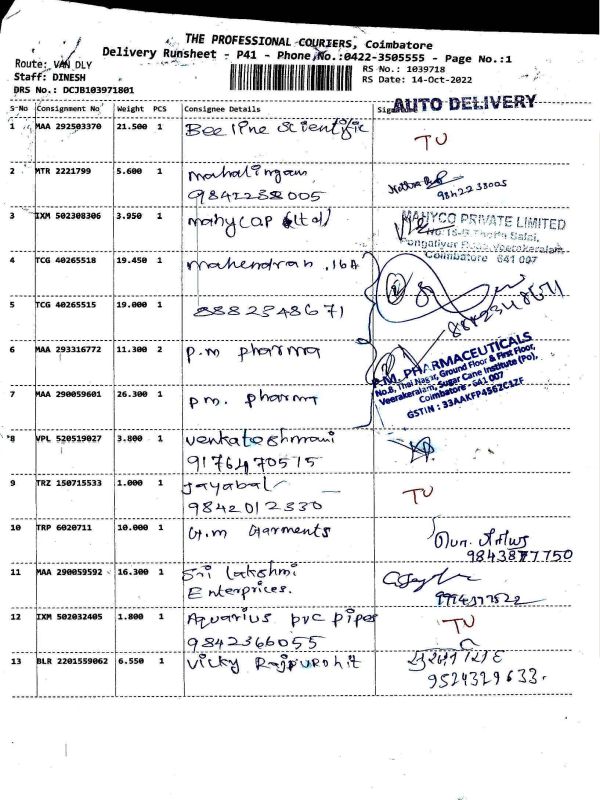 THE PROFESSIONAL COURIERS, Coimbatore
Delivery Runsheet - P41 - Phone No.:0422-3505555 - Page No.:1
Route: VAN DLY
Staff: DINESH
DRS No.: DCJB103971801
RS No.: 1039718
RS Date: 14-Oct-2022
S No Consignment No Weight PCS Consignee Details
AUTO DELIVERY
1 MAA 292503370 21.500 1 Bee line Scientific TU
2 MTR 2221799 5.600 1 Mahalingam
9841238005
3 IXM 502308306 3.950 1 mahycap (ltd)
MAHYCO PRIVATE LIMITED
Coimbatore 641 007
4 TCG 40265518 19.450 1 Mahendran, 16A
5 TCG 40265515 19.000 1 8882348671
6 MAA 293316772 11.300 2 P.m pharma
P.M. PHARMACEUTICALS
No.8, Thai Nagar, Ground Floor & First Floor,
Veerakeralam, Sugar Cane Institute (Po),
Coimbatore - 641 007
GSTIN : 33AAKFP4562C1ZF
7 MAA 290059601 26.300 1 pm. pharma
*8 VPL 520519027 3.800 1 venkateshmani
9176470515
9 TRZ 150715533 1.000 1 Jayabal TU
9842012330
10 TRP 6020711 10.000 1 G.m Garments
9843877750
11 MAA 290059592 16.300 1 Sri lakshmi
Enterprices.
12 IXM 502032405 1.800 1 Aquarius pvc pipes TU
9842366055
13 BLR 2201559062 6.550 1 Vicky Rajpurohit
9524329633.